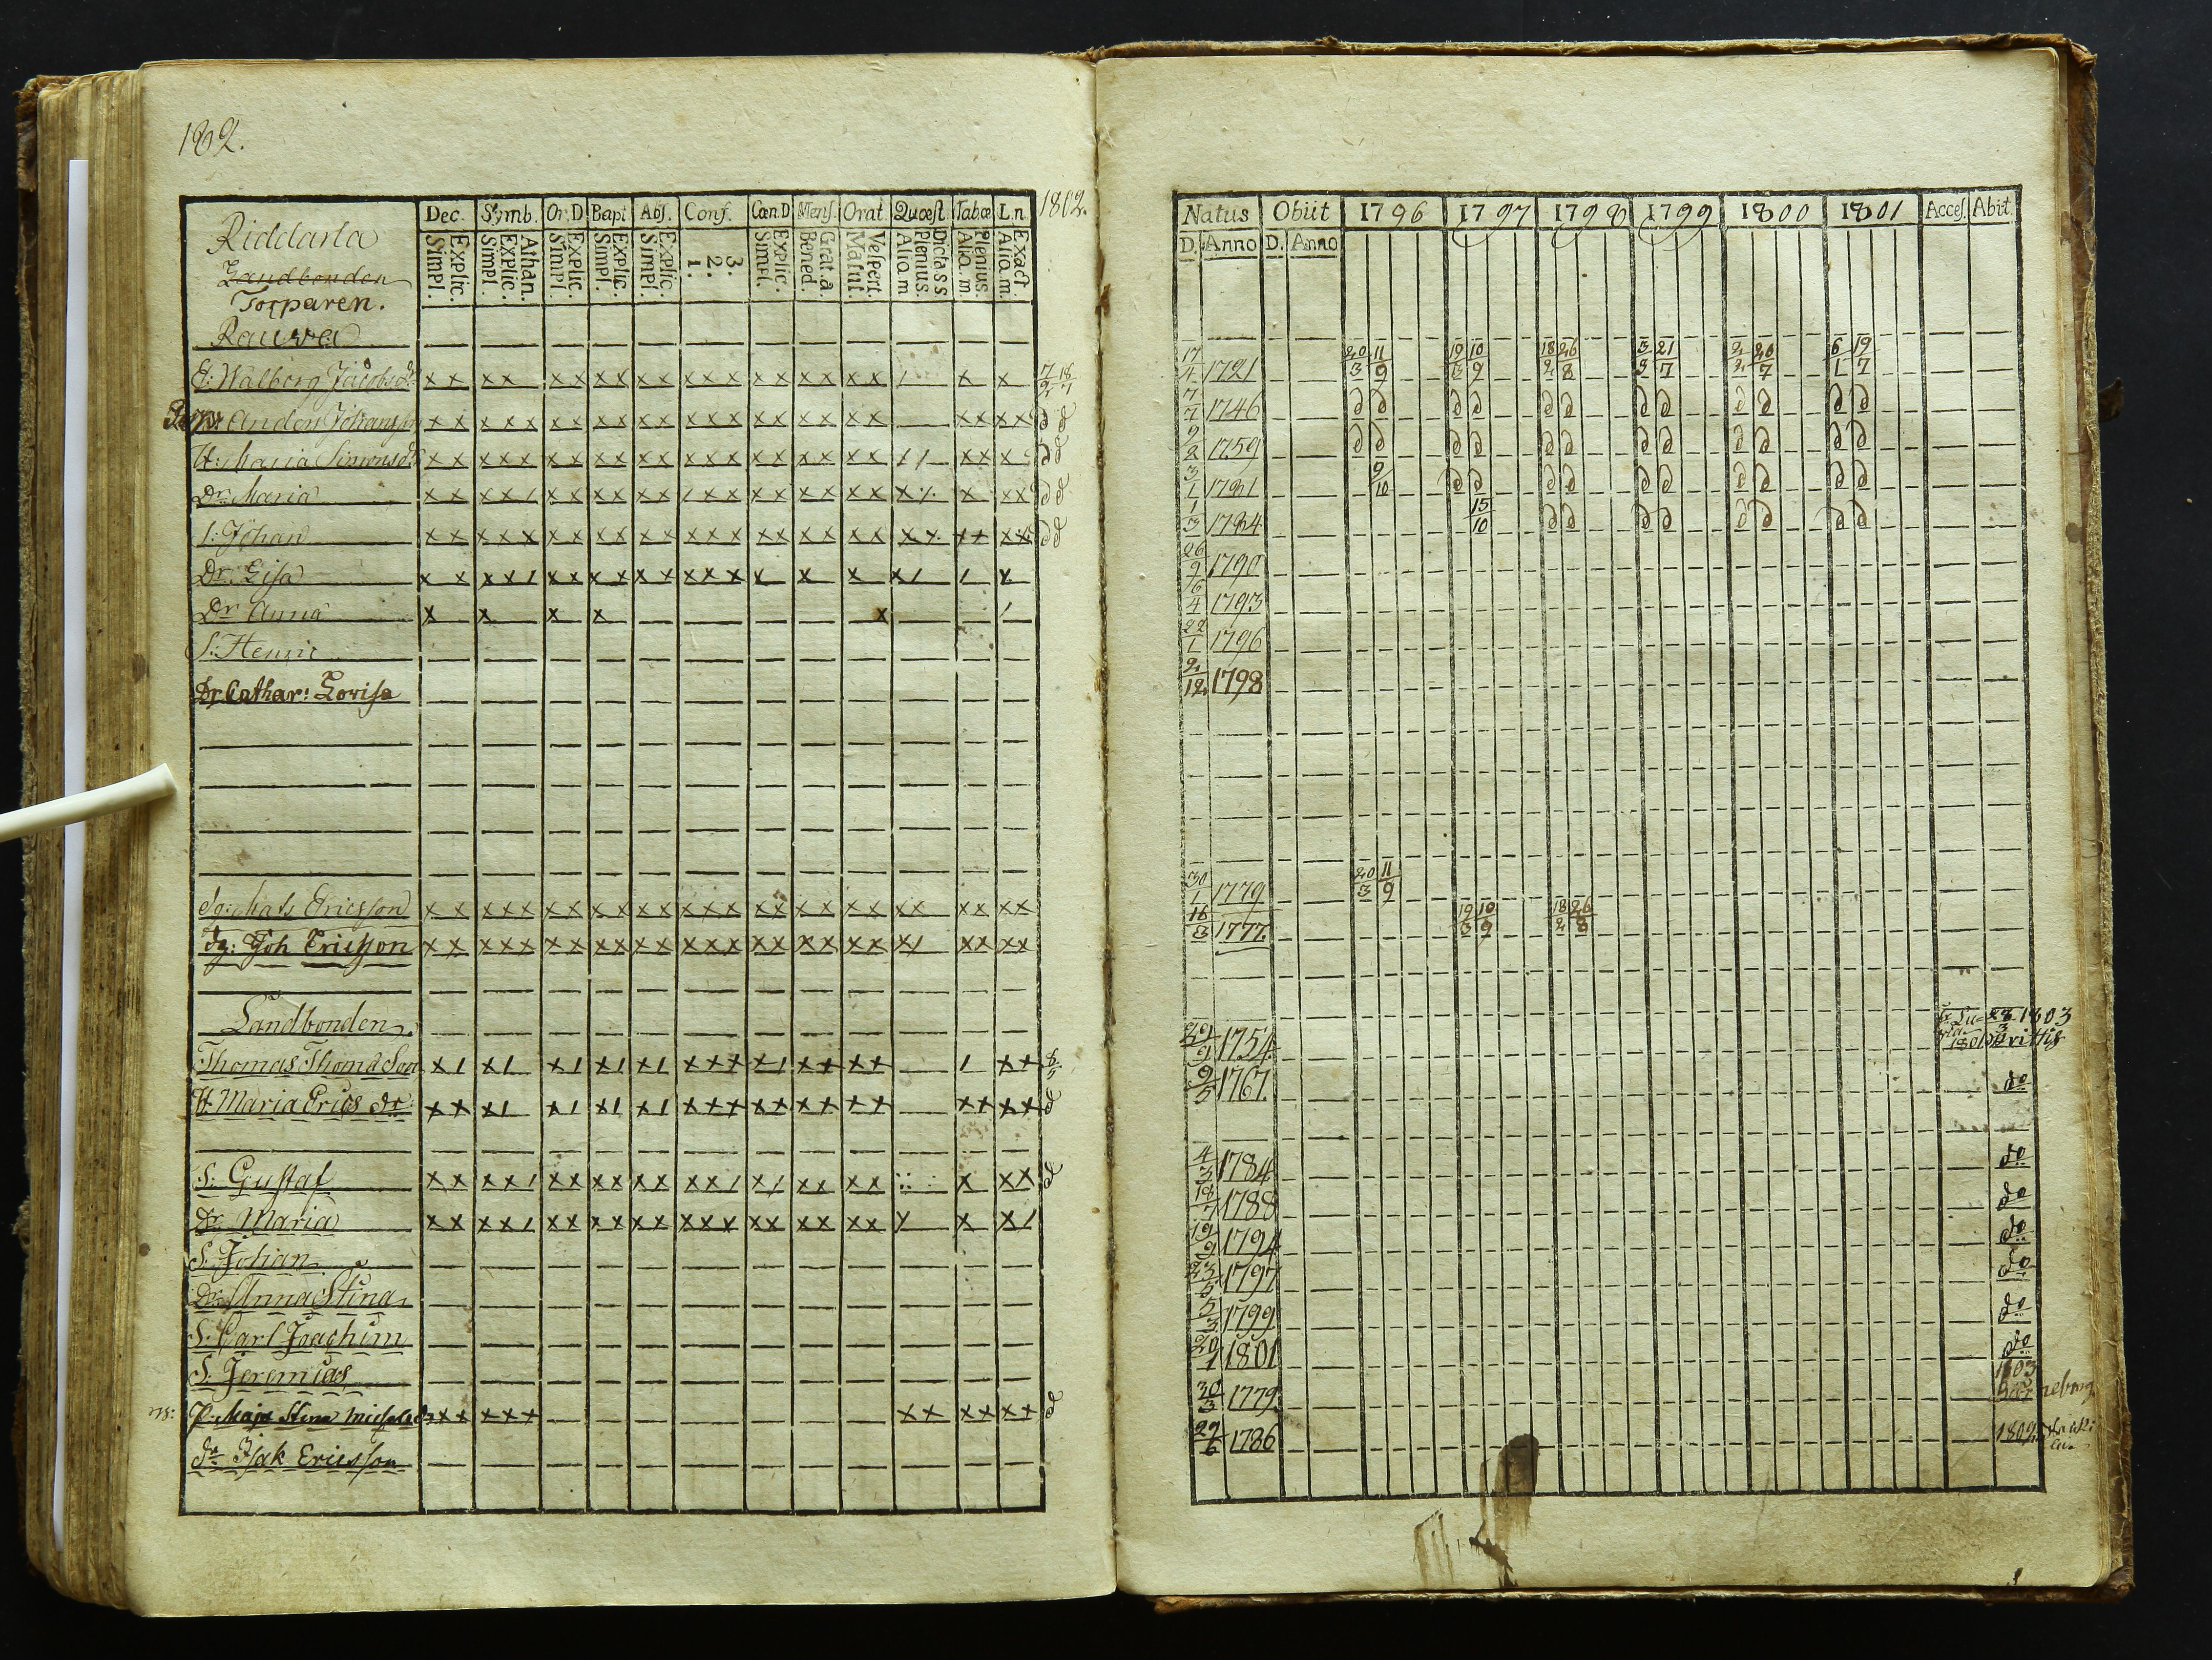 182.
1802.
Dec. Symb. Or.D Bapt Abs. Conf. Cœn.D Mens. Orat. Quæst. Tabœ L.n
Explic. Simpl. Athan. Explic. Simpl. Explic. Simpl. Explic. Simpl. Explic. Simpl. 3. 2. 1. Explic. Simpl. Grat.a. Bened. Vespert. Matut. Dict.a s s Plenius. Aliq.m Plenius. Aliq.m. Exact. Aliq.m.
Riddarla
Landbonden
Torparen.
Rauwa
E: Walborg Jacobsdr
Anders Johansson
H: Maria Simonsdr
Dr Maria
S: Johan
Dr: Lisa
Dr Anna
S: Henric
Dr. Cathar: Lovisa
dg: Mats Ericsson
dg: Joh Ericsson
Landbonden
Thomas Thomasson
H Maria Erics dr
S: Gustaf
Dr Maria
S: Johan
Dr: Anna Stina
S: Carl Joachim
S. Jeremias
P: Maja Stina Michelsdr
dr Isak Ericsson
Natus Obiit 1796 1797 1798 1799 1800 1801 Acces. Abit.
D. Anno D. Anno
17/4 1721 20/3 11/9 19/3 10/9 18/2 26/8 3/3 21/7 2/2 20/7 6/1 19/7
7/7 1746
9/2 1759
3/1 1781 9/10
1/3 1784 15/10
26/9 1790
6/4 1793
22/1 1796
2/12 1798
30/1 1779 20/3 11/9
16/3 1777. 19/3 10/9 18/2 26/8
29/9 1754 1801 28/3 1803
9/5 1767. do
4/3 1784 do
18/7 1788 do
19/9 1794 do
23/5 1797 do
5/3 1799 do
20/1 1801 do
30/3 1779. 1803
29/6 1786 1802